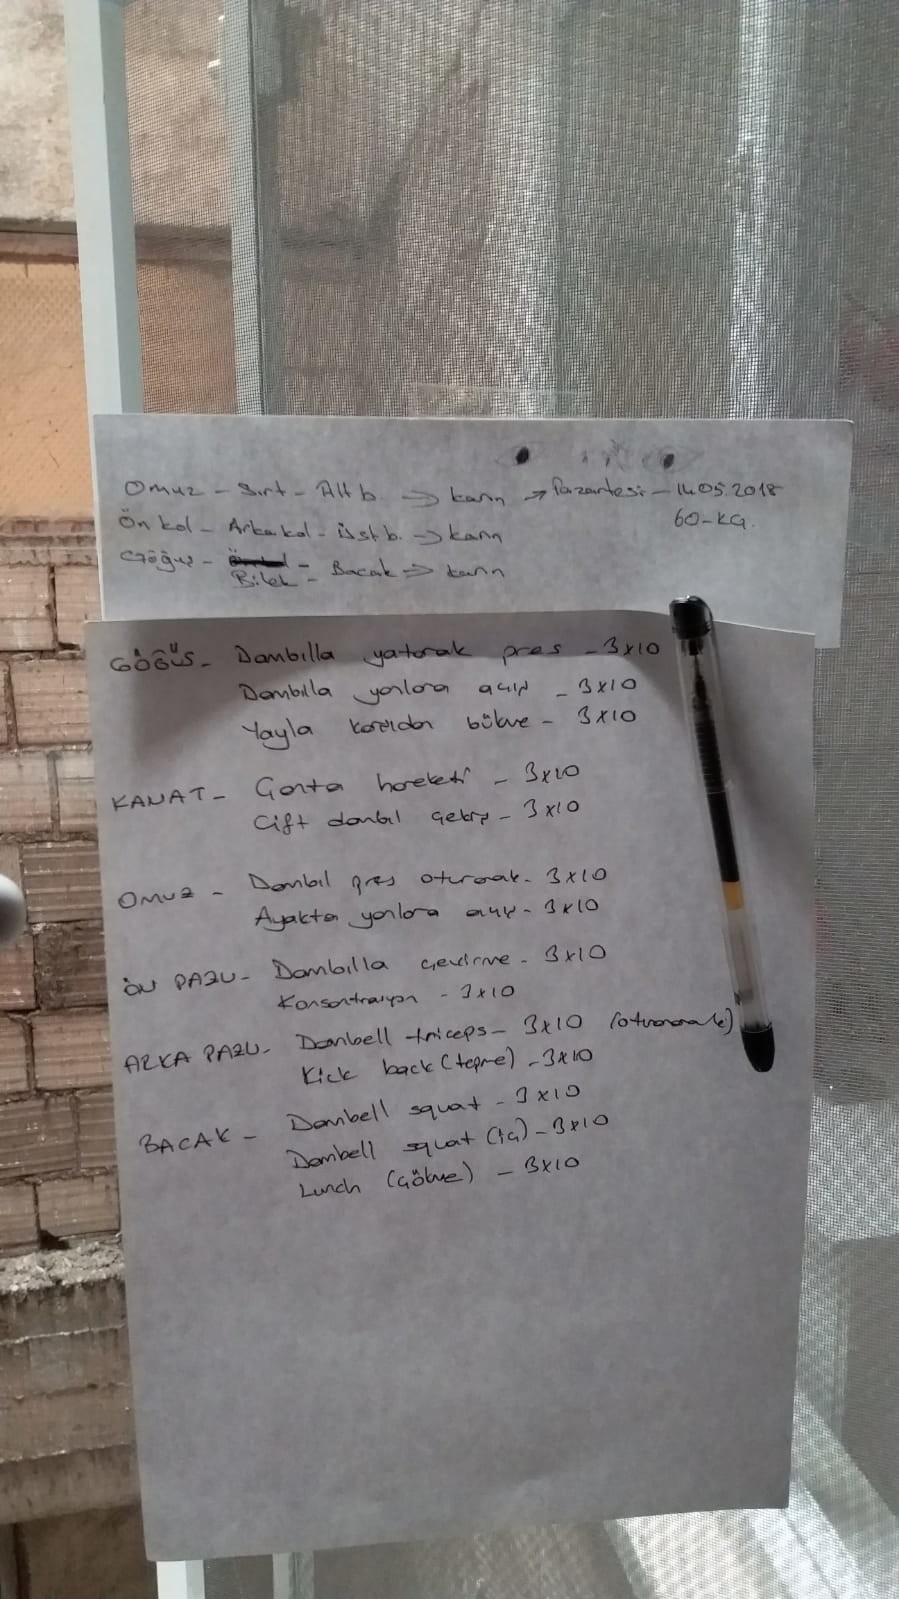 Omuz - Sırt - Alt b. → karın → Pazartesi - 14.05.2018
60-KG.
Ön kol - Arka kol - üst b. → karın
Göğüs - Bilek - Bacak → karın
GÖĞÜS - Dambılla yatarak pres - 3x10
Dambılla yanlara açış - 3x10
Yayla karşıdan bükme - 3x10
KANAT - Çanta hareketi - 3x10
Çift dambıl çekiş - 3x10
OMUZ - Dambıl pres oturarak - 3x10
Ayakta yanlara açış - 3x10
ÖN PAZU - Dambılla çevirme - 3x10
Konsontrasyon - 3x10
ARKA PAZU - Dambell triceps - 3x10 (oturarak)
Kick back (tepme) - 3x10
BACAK - Dambell squat - 3x10
Dambell squat (iç) - 3x10
Lunch (Çökme) - 3x10